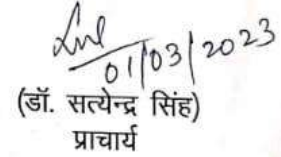 01/03/2023
(डॉ. सत्येन्द्र सिंह)
प्राचार्य